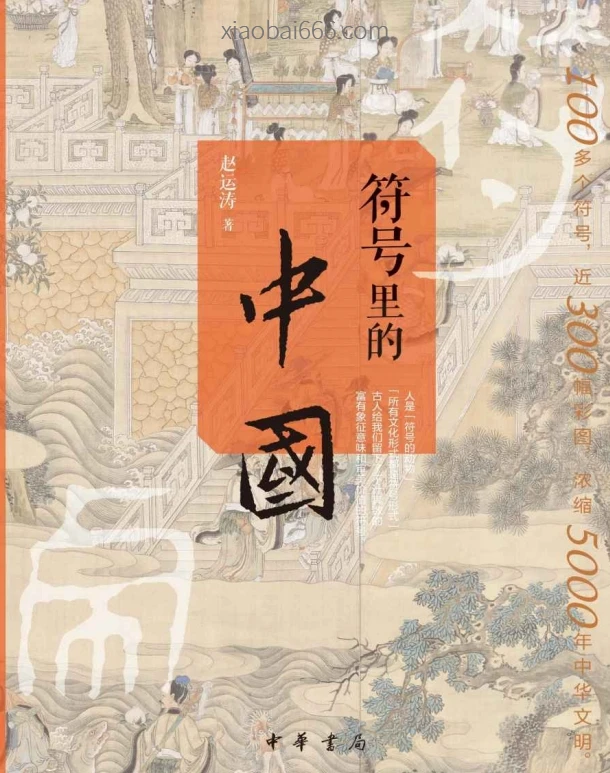 xiaobai666.com
100多个符号，近300幅彩图，浓缩5000年中华文明。
符号里的
中國
赵运涛 著
人是「符号的动物」
「所有文化形式
古人给我们留下
富有象征意味和
中華書局